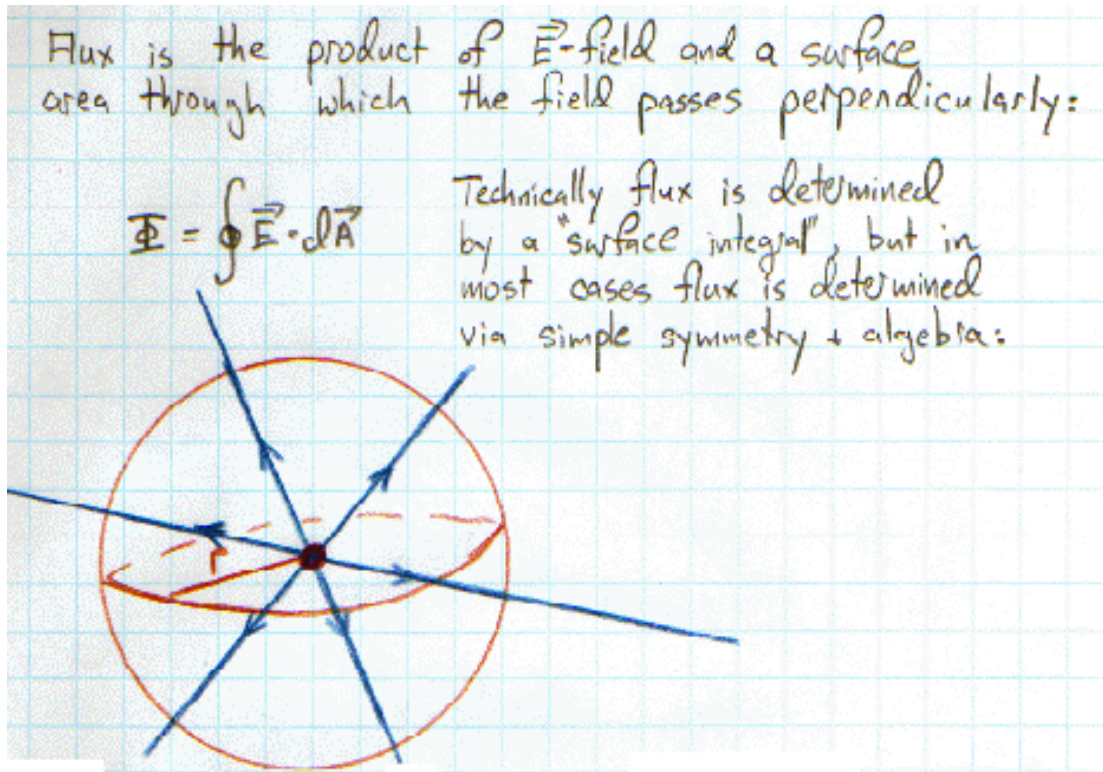 Flux is the product of E⃗-field and a surface
area through which the field passes perpendicularly:
Φ = ∮ E⃗ · dA⃗
Technically flux is determined
by a "surface integral", but in
most cases flux is determined
via simple symmetry + algebra:
r